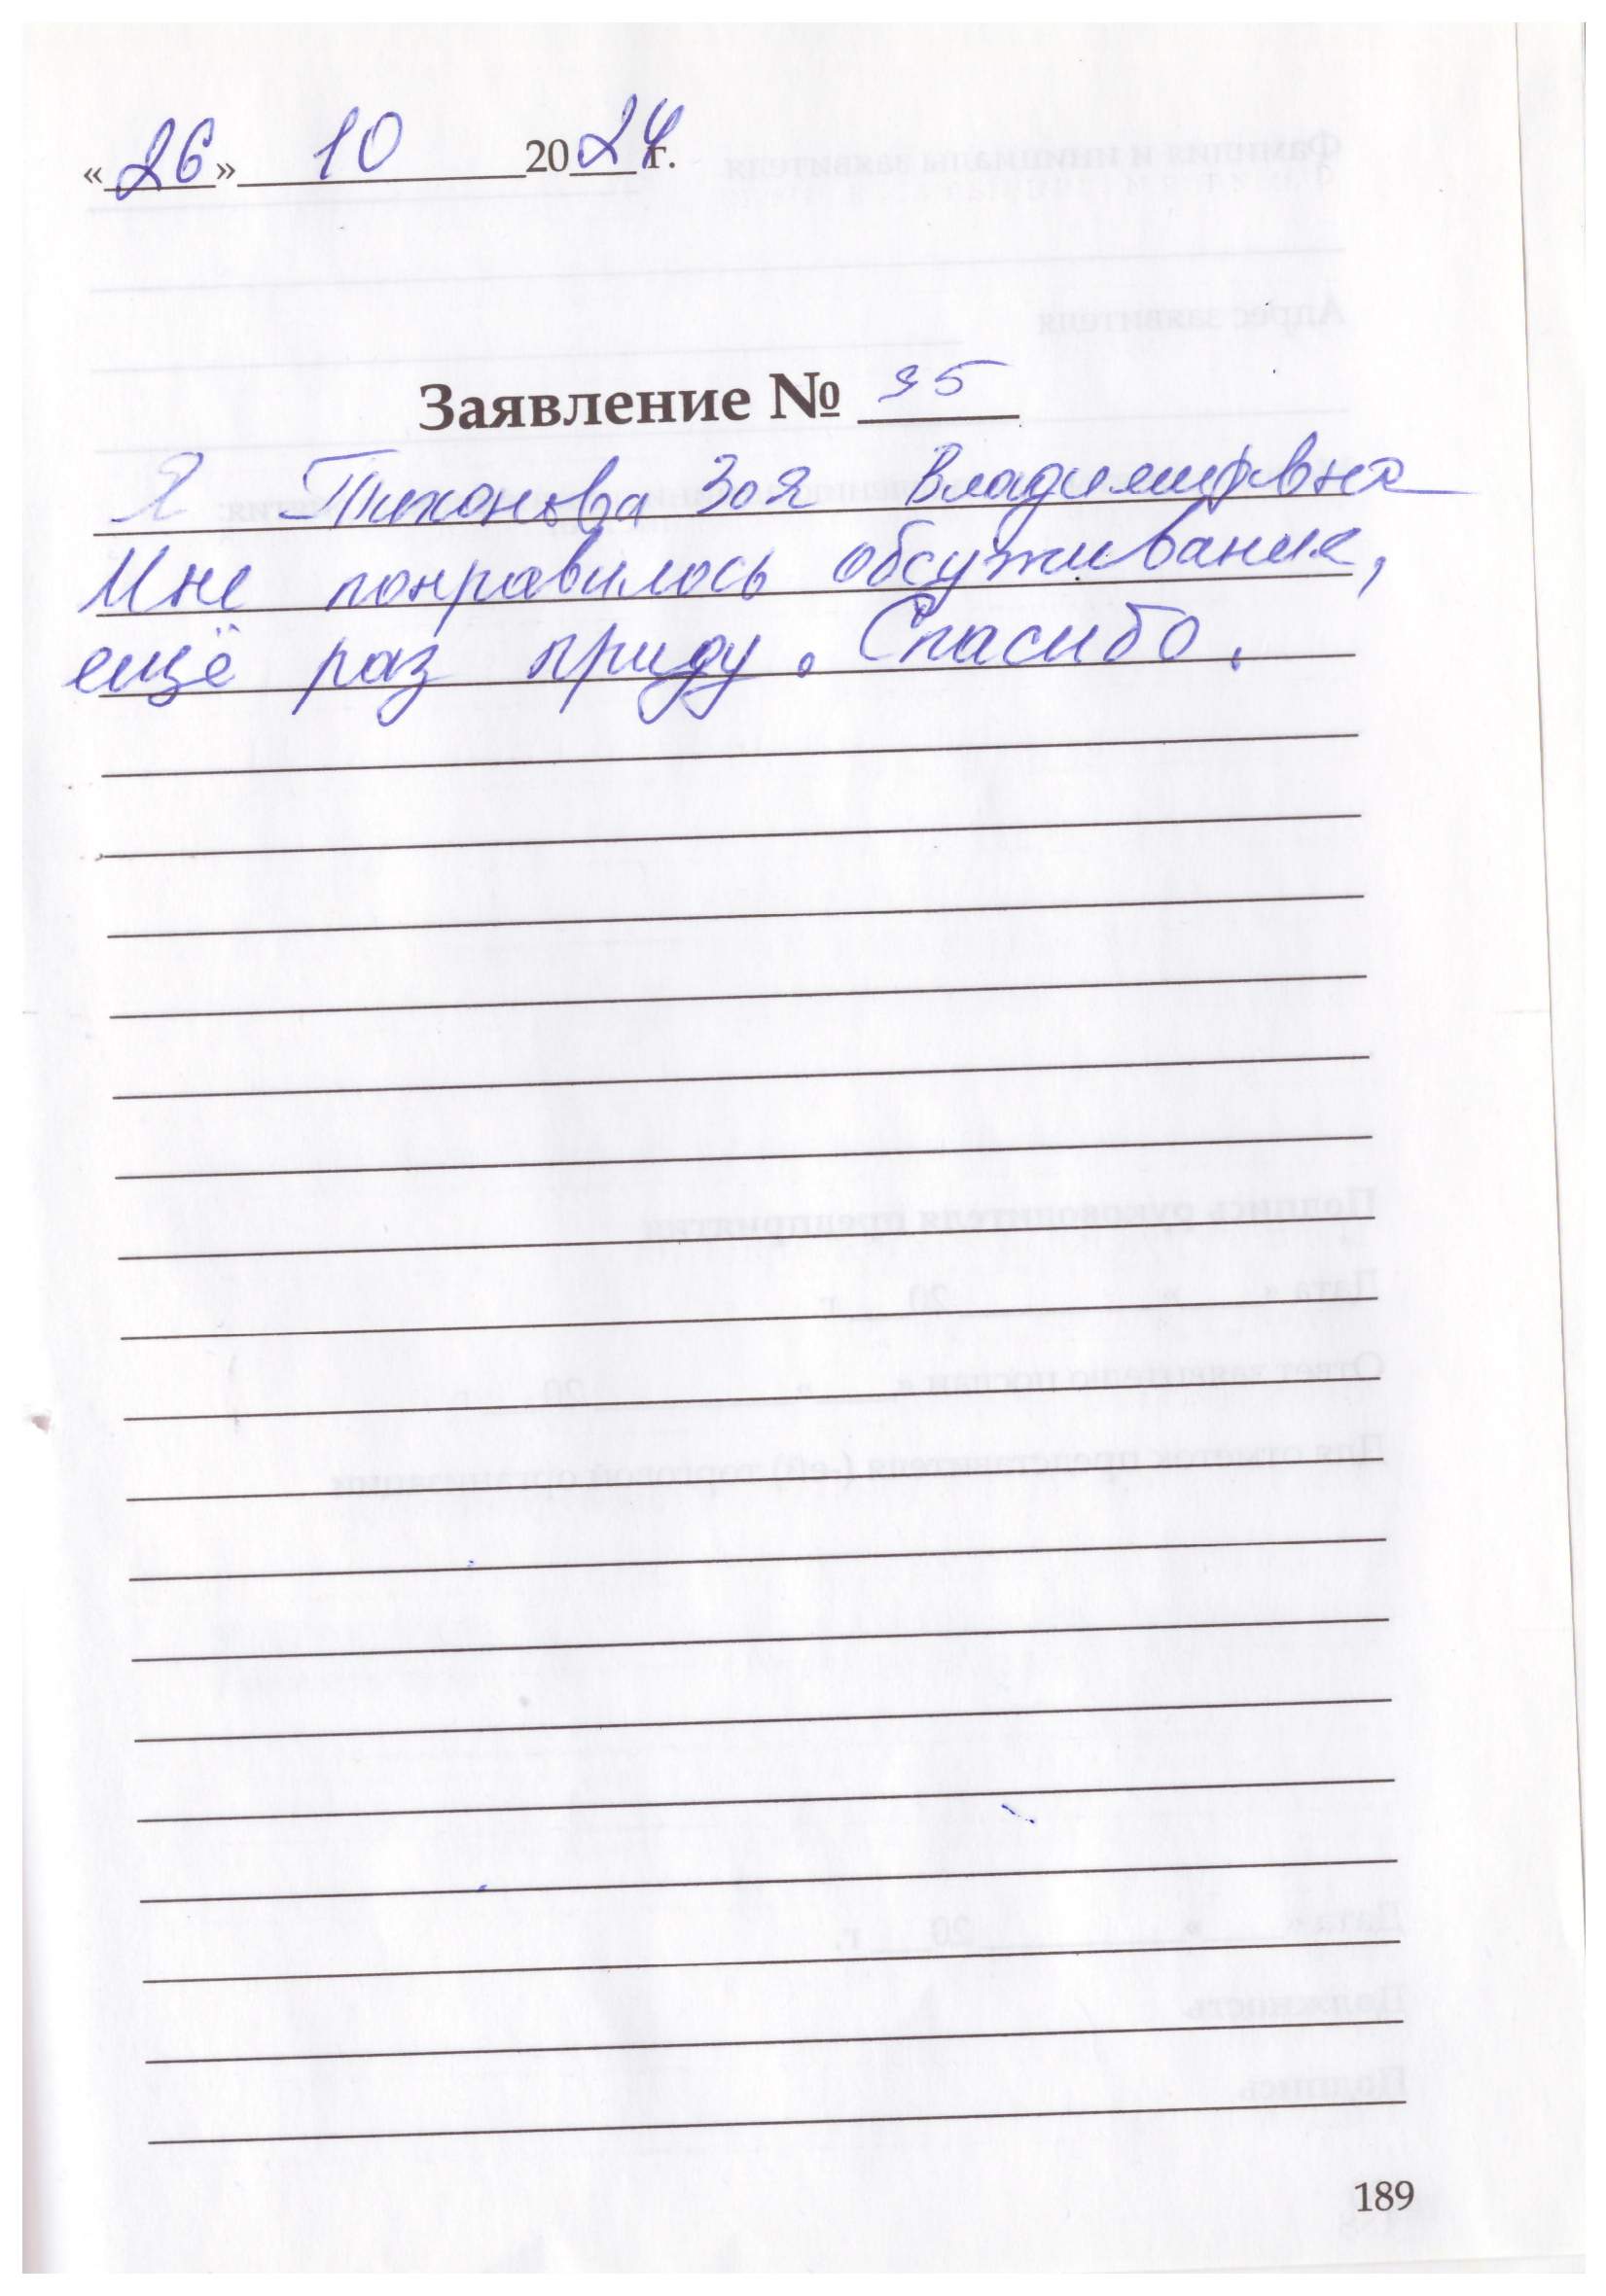 «26» 10 2024 г.
Заявление № 95
Я Тихонова Зоя Владимировна
Мне понравилось обсуживание,
ещё раз приду. Спасибо.
189